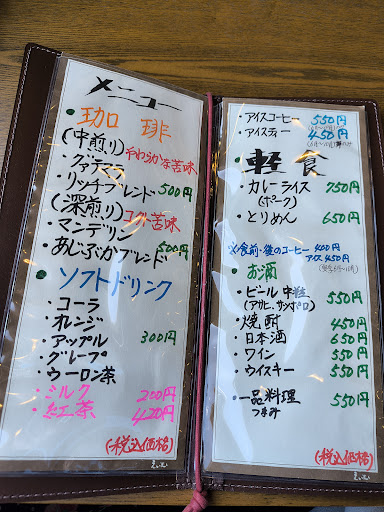 メニュー
珈琲
(中煎り)やわらかな苦味
・グァテマラ
・リッチブレンド 500円
(深煎り)コクと苦味
・マンデリン
・あじぶかブレンド 500円
ソフトドリンク
・コーラ
・オレンジ
・アップル 300円
・グレープ
・ウーロン茶
・ミルク 200円
・紅茶 420円
(税込価格)
・アイスコーヒー 550円
・アイスティー 450円
軽食
・カレーライス 750円
(ポーク)
・とりめん 650円
※食前・後のコーヒー 400円
アイス 450円
お酒
・ビール 中粒 550円
(アサヒ、サッポロ)
・焼酎 450円
・日本酒 650円
・ワイン 550円
・ウイスキー 550円
・一品料理 550円
つまみ
(税込価格)